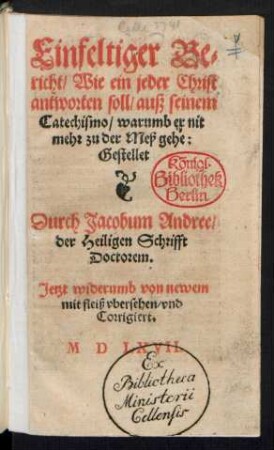 Einfeltiger Be-
richt/ Wie ein jeder Christ
antworten soll/ auß seinem
Catechismo/ warumb er nit
mehr zu der Meß gehe:
Gestellet
Königl.
Bibliothek
Berlin
Durch Jacobum Andree/
der Heiligen Schrifft
Doctorem.
Jetzt widerumb von newem
mit fleiß vbersehen/ vnd
Corrigiert.
M D LXVII.
Ex
Bibliotheca
Ministerii
Cellensis